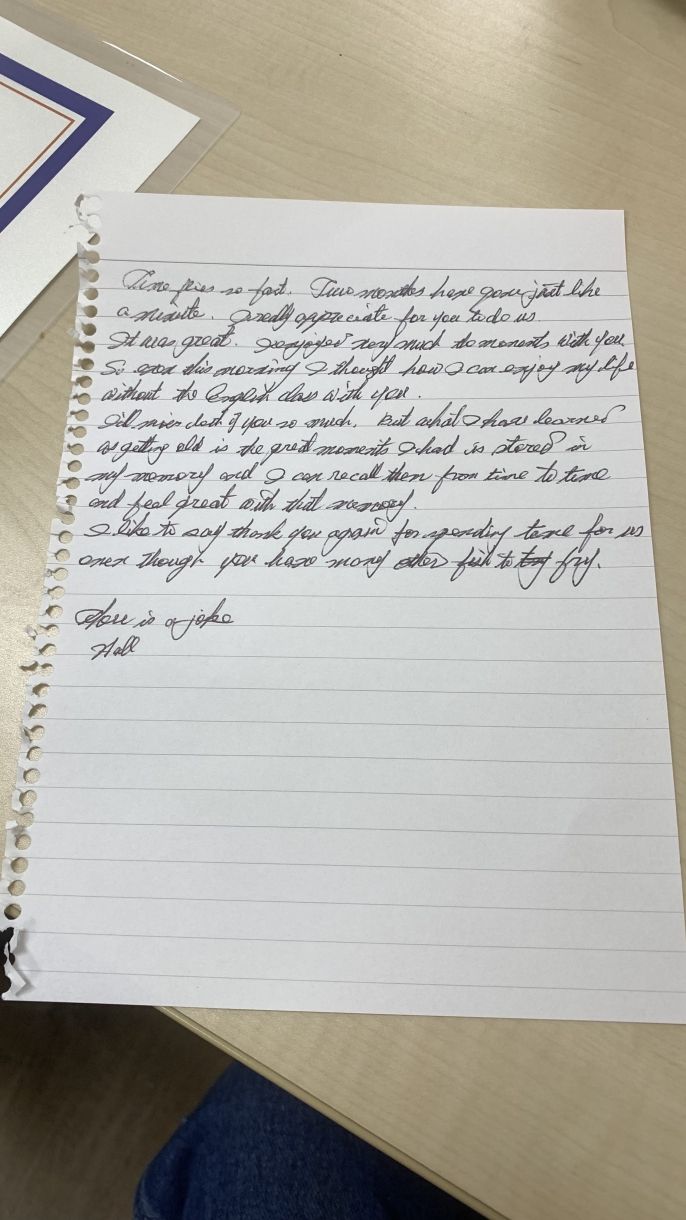 Time flies so fast. Two months have gone just like
a minute. Greatly appreciate for you to do us.
It was great. I enjoyed very much the moments with you.
So even this morning I thought how I can enjoy my life
without the English class with you.
I'll miss of you so much. But what I have learned
as getting old is the great moments I had is stored in
my memory and I can recall them from time to time
and feel great with that memory.
I like to say thank you again for spending time for us
even though you have many other fish to fry.
Here is a joke